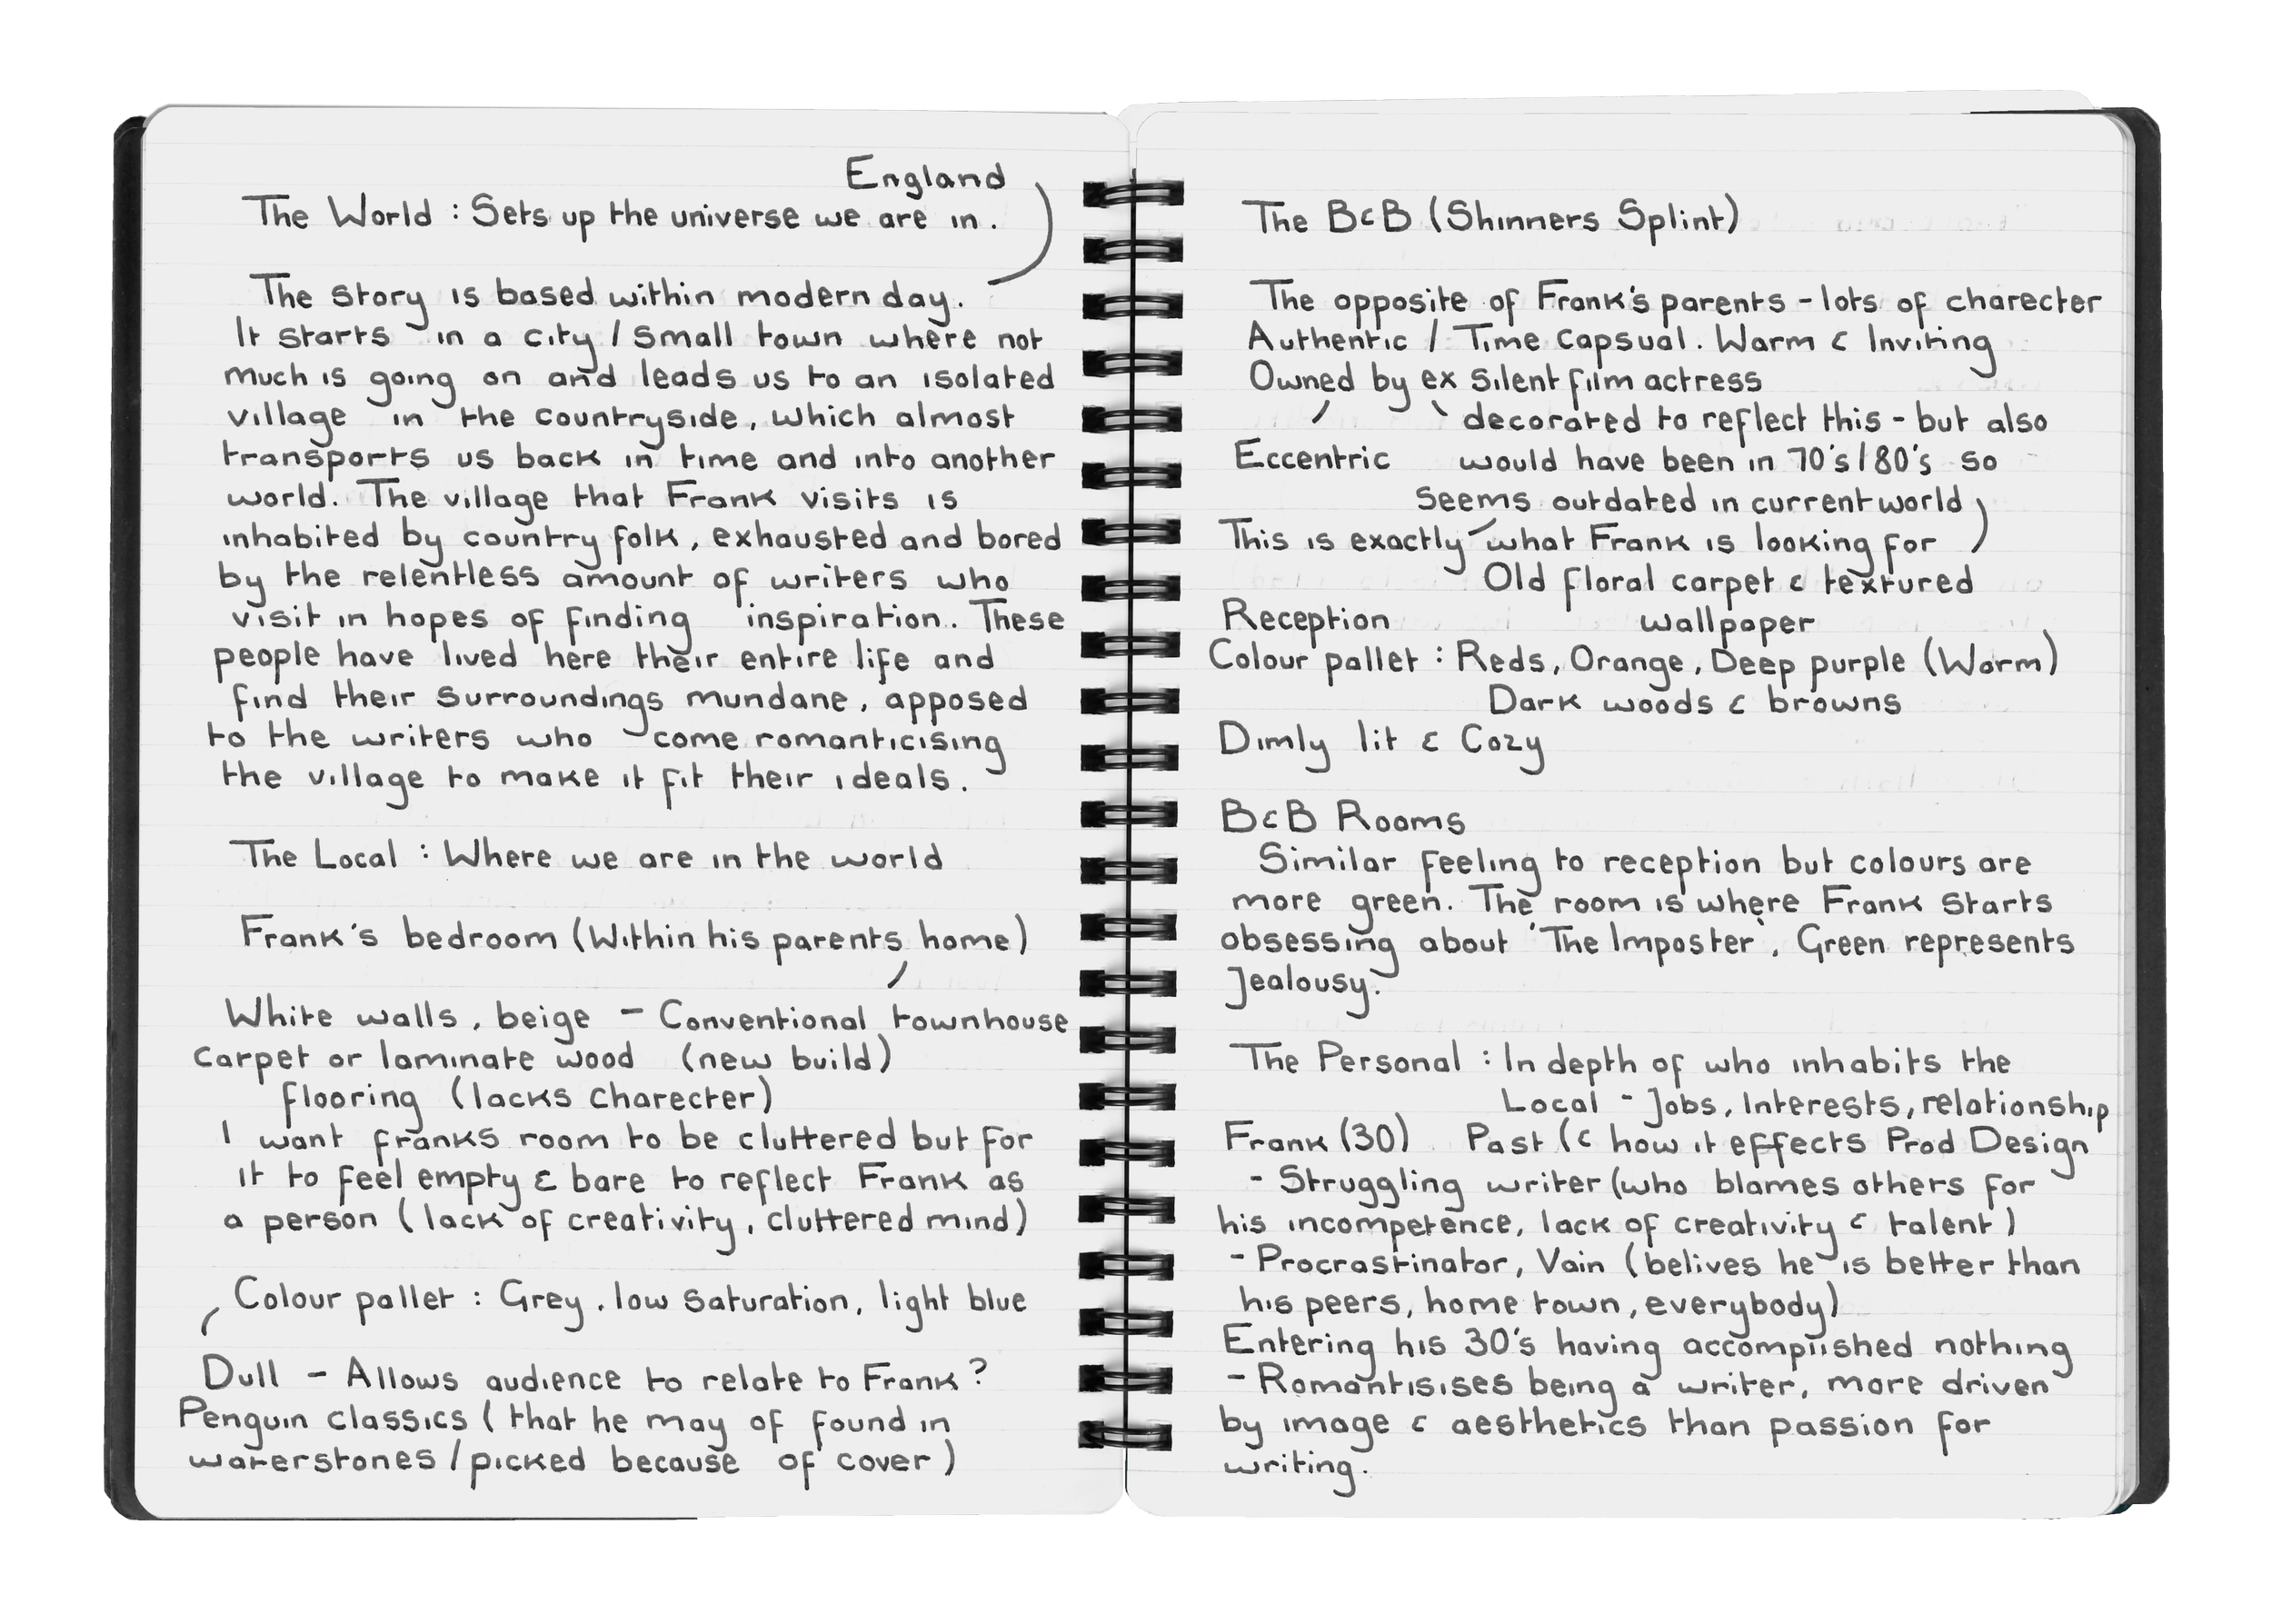 England
The World : Sets up the universe we are in.
The story is based within modern day.
It starts in a city / small town where not
much is going on and leads us to an isolated
village in the countryside, which almost
transports us back in time and into another
world. The village that Frank visits is
inhabited by country folk, exhausted and bored
by the relentless amount of writers who
visit in hopes of finding inspiration. These
people have lived here their entire life and
find their surroundings mundane, apposed
to the writers who come romanticising
the village to make it fit their ideals.
The Local : Where we are in the world
Frank's bedroom (Within his parents home)
White walls, beige - Conventional townhouse
carpet or laminate wood (new build)
flooring (lacks charecter)
I want franks room to be cluttered but for
it to feel empty & bare to reflect Frank as
a person (lack of creativity, cluttered mind)
Colour pallet : Grey, low saturation, light blue
Dull - Allows audience to relate to Frank?
Penguin classics (that he may of found in
waterstones / picked because of cover)
The B&B (Shinners Splint)
The opposite of Frank's parents - lots of charecter
Authentic / Time capsual. Warm & Inviting
Owned by ex silent film actress
decorated to reflect this - but also
Eccentric would have been in 70's/80's so
seems outdated in current world
This is exactly what Frank is looking for
Old floral carpet & textured
Reception wallpaper
Colour pallet : Reds, Orange, Deep purple (Warm)
Dark woods & browns
Dimly lit & Cozy
B&B Rooms
Similar feeling to reception but colours are
more green. The room is where Frank starts
obsessing about 'The Imposter', Green represents
Jealousy.
The Personal : In depth of who inhabits the
Local - Jobs, Interests, relationship
Frank (30) Past (& how it effects Prod Design
- Struggling writer (who blames others for
his incompetence, lack of creativity & talent)
- Procrastinator, Vain (belives he is better than
his peers, home town, everybody)
Entering his 30's having accomplished nothing
- Romantisises being a writer, more driven
by image & aesthetics than passion for
writing.